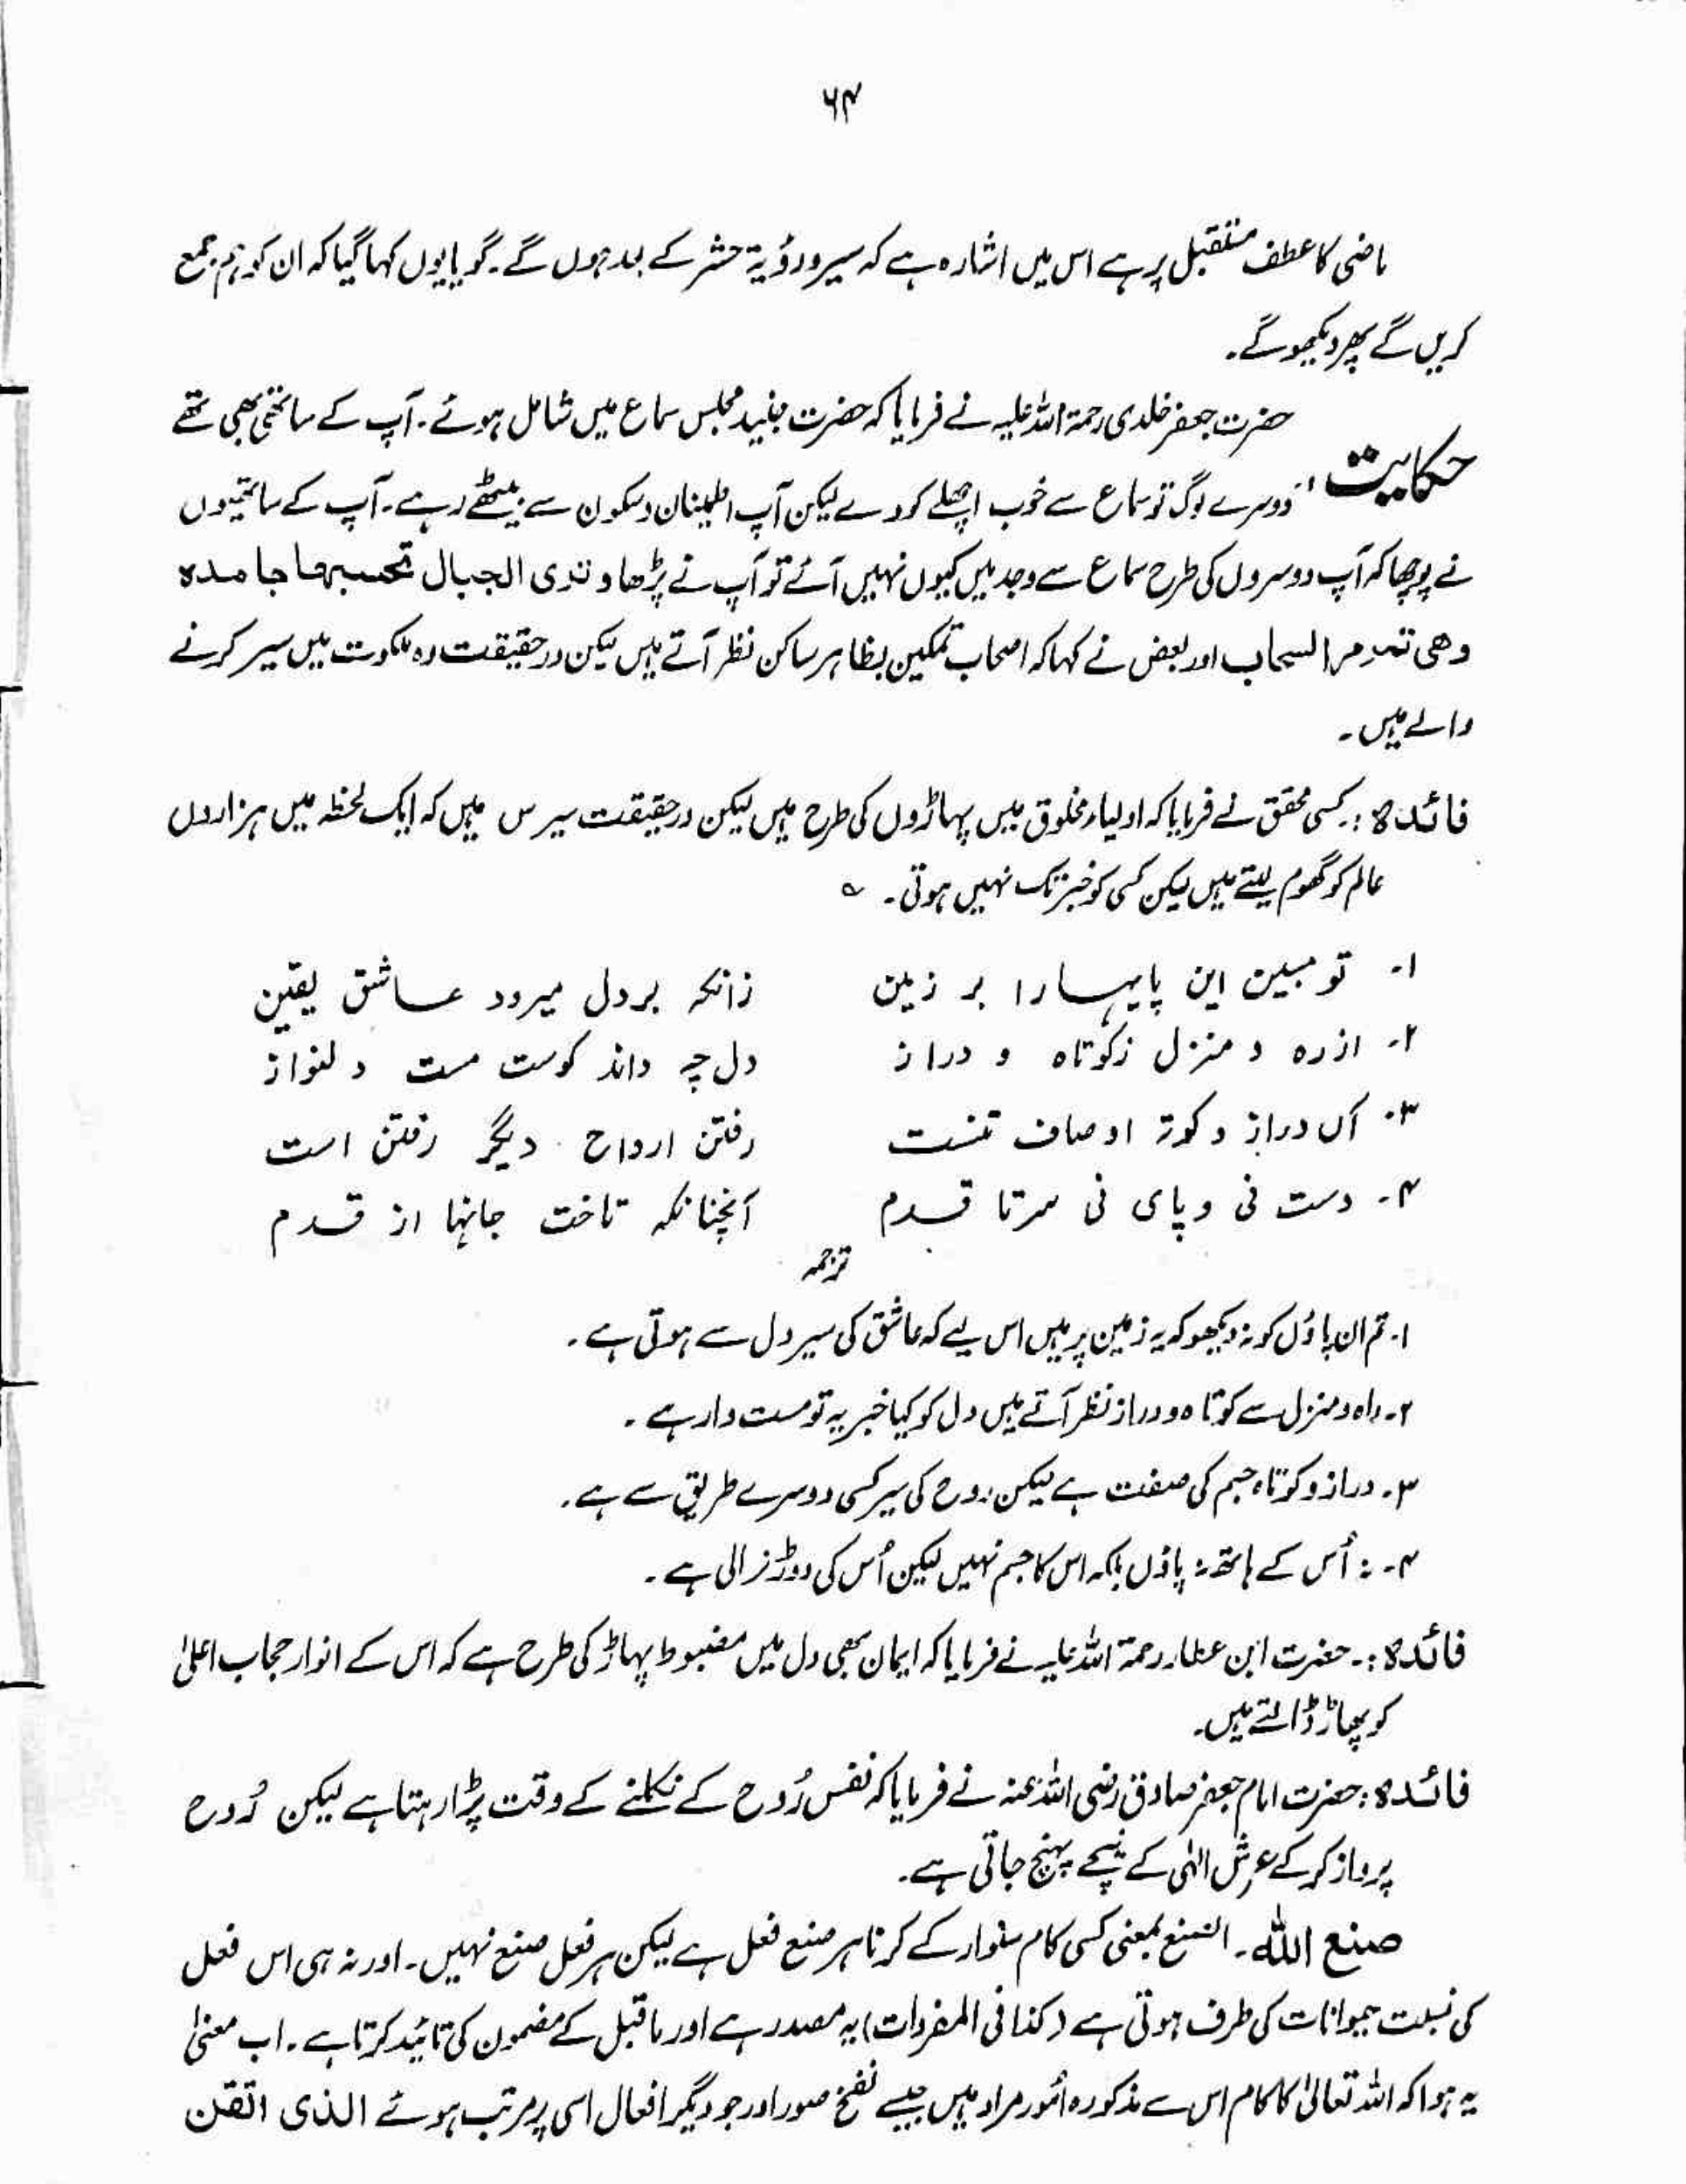 ۶۴
ماضی کا عطف مستقبل پر ہے اس میں اشارہ ہے کہ سیر و رؤیۃ حشر کے بعد ہوں گے۔ گویا یوں کہا گیا کہ ان کو ہم جمع
کریں گے پھر دیکھو گے۔
حضرت جعفر خلدی رحمۃ اللہ علیہ نے فرمایا کہ حضرت جنید مجلس سماع میں شامل ہوئے۔ آپ کے ساتھی بھی تھے
حکایت : دوسرے لوگ تو سماع سے خوب اچھلے کودے لیکن آپ اطمینان و سکون سے بیٹھے رہے۔ آپ کے ساتھیوں
نے پوچھا کہ آپ دوسروں کی طرح سماع سے وجد میں کیوں نہیں آئے تو آپ نے پڑھا و تری الجبال تحسبہا جامدہ
وھی تمر مر السحاب اور بعض نے کہا کہ اصحاب تمکین بظاہر ساکن نظر آتے ہیں لیکن درحقیقت وہ ملکوت میں سیر کرنے
والے ہیں۔
فائدہ :۔ کسی محقق نے فرمایا کہ اولیاء مخلوق میں پہاڑوں کی طرح ہیں لیکن درحقیقت سیر س ہیں کہ ایک لحظہ میں ہزاروں
عالم کو گھوم لیتے ہیں لیکن کسی کو خبر تک نہیں ہوتی۔ ؎
۱۔ تو مبین این پایہا را بر زمین زانکہ بر دل میرود عاشق یقین
۲۔ از رہ و منزل ز کوتاہ و دراز دل چہ داند کوست مست دلنواز
۳۔ آں دراز و کوتہ اوصاف تنست رفتن ارواح دیگر رفتن است
۴۔ دست نی و پای نی سر تا قدم آنچنانکہ تاخت جانہا از قدم
ترجمہ
۱۔ تم ان پاؤں کو نہ دیکھو کہ یہ زمین پر ہیں اس لیے کہ عاشق کی سیر دل سے ہوتی ہے۔
۲۔ راہ و منزل سے کوتاہ و دراز نظر آتے ہیں دل کو کیا خبر یہ تو مست وار ہے۔
۳۔ دراز و کوتاہ جسم کی صفت ہے لیکن روح کی سیر کسی دوسرے طریق سے ہے۔
۴۔ نہ اُس کے ہاتھ نہ پاؤں بلکہ اس کا جسم نہیں لیکن اُس کی دوڑ نرالی ہے۔
فائدہ :۔ حضرت ابن عطار رحمۃ اللہ علیہ نے فرمایا کہ ایمان بھی دل میں مضبوط پہاڑ کی طرح ہے کہ اس کے انوار حجاب اعلیٰ
کو پھاڑ ڈالتے ہیں۔
فائدہ : حضرت امام جعفر صادق رضی اللہ عنہ نے فرمایا کہ نفس رُوح کے نکلنے کے وقت پڑا رہتا ہے لیکن رُوح
پرواز کر کے عرش الٰہی کے نیچے پہنچ جاتی ہے۔
صنع اللہ۔ الصنع بمعنی کسی کام سنوار کے کرنا ہر صنع فعل ہے لیکن ہر فعل صنع نہیں۔ اور نہ ہی اس فعل
کی نسبت حیوانات کی طرف ہوتی ہے (کذا فی المفردات) یہ مصدر ہے اور ماقبل کے مضمون کی تائید کرتا ہے۔ اب معنیٰ
یہ ہوا کہ اللہ تعالیٰ کا کام اس سے مذکورہ اُمور مراد ہیں جیسے نفخ صور اور جو دیگر افعال اسی پر مرتب ہوئے الذی اتقن